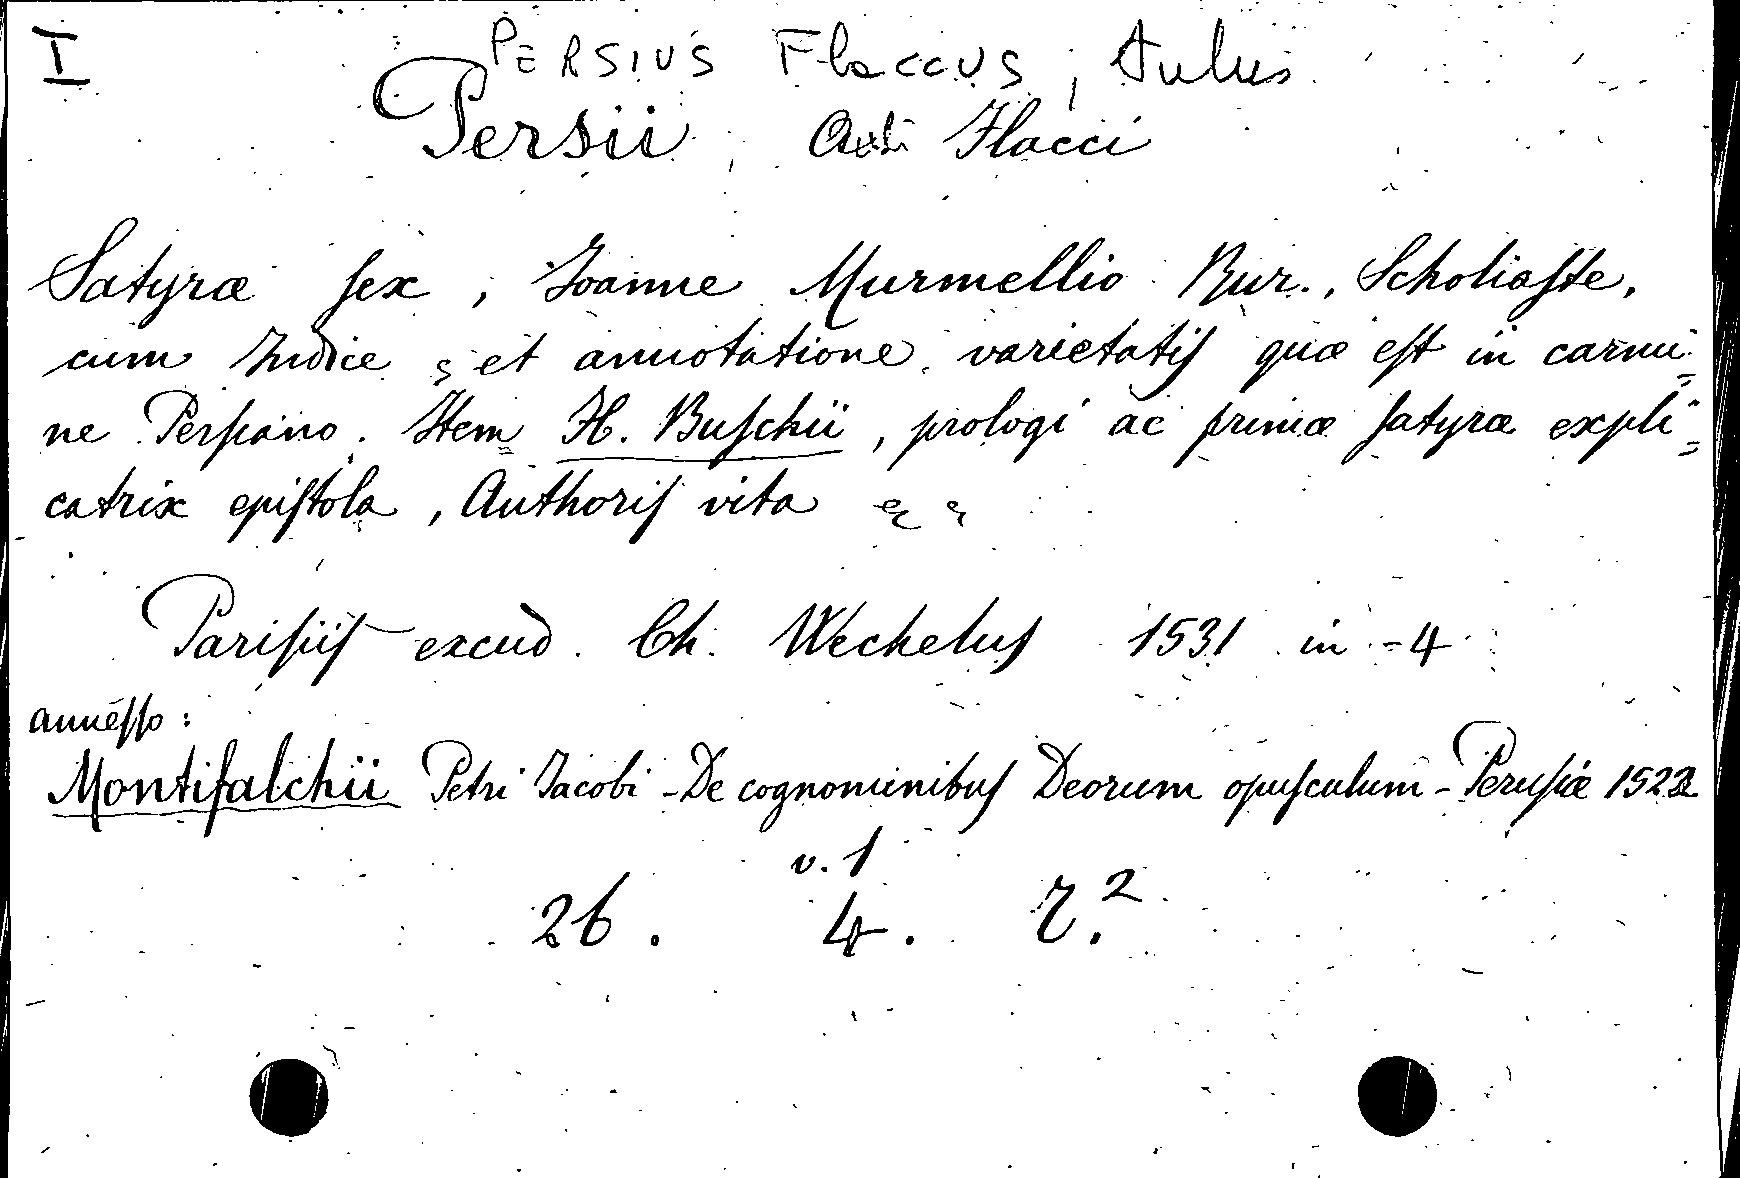 I
PERSIUS Flaccus, Aulus
Persii, Auli Flacci
Satyræ ſex, Joanne Murmellio Rur., Scholiaſte,
cum Indice, et annotatione varietatiſ quæ eſt in carmi=
ne Perſiano. Item H. Buſchii, prologi ac primæ ſatyræ expli=
catrix epiſtola, Authoriſ vita
Pariſiiſ excud. Ch. Wecheluſ 1531 in-4
anneſſo:
Montifalchii Petri Jacobi - De cognominibuſ Deorum opuſculum - Peruſiæ 1522
v. 1
26. 4. Z.²